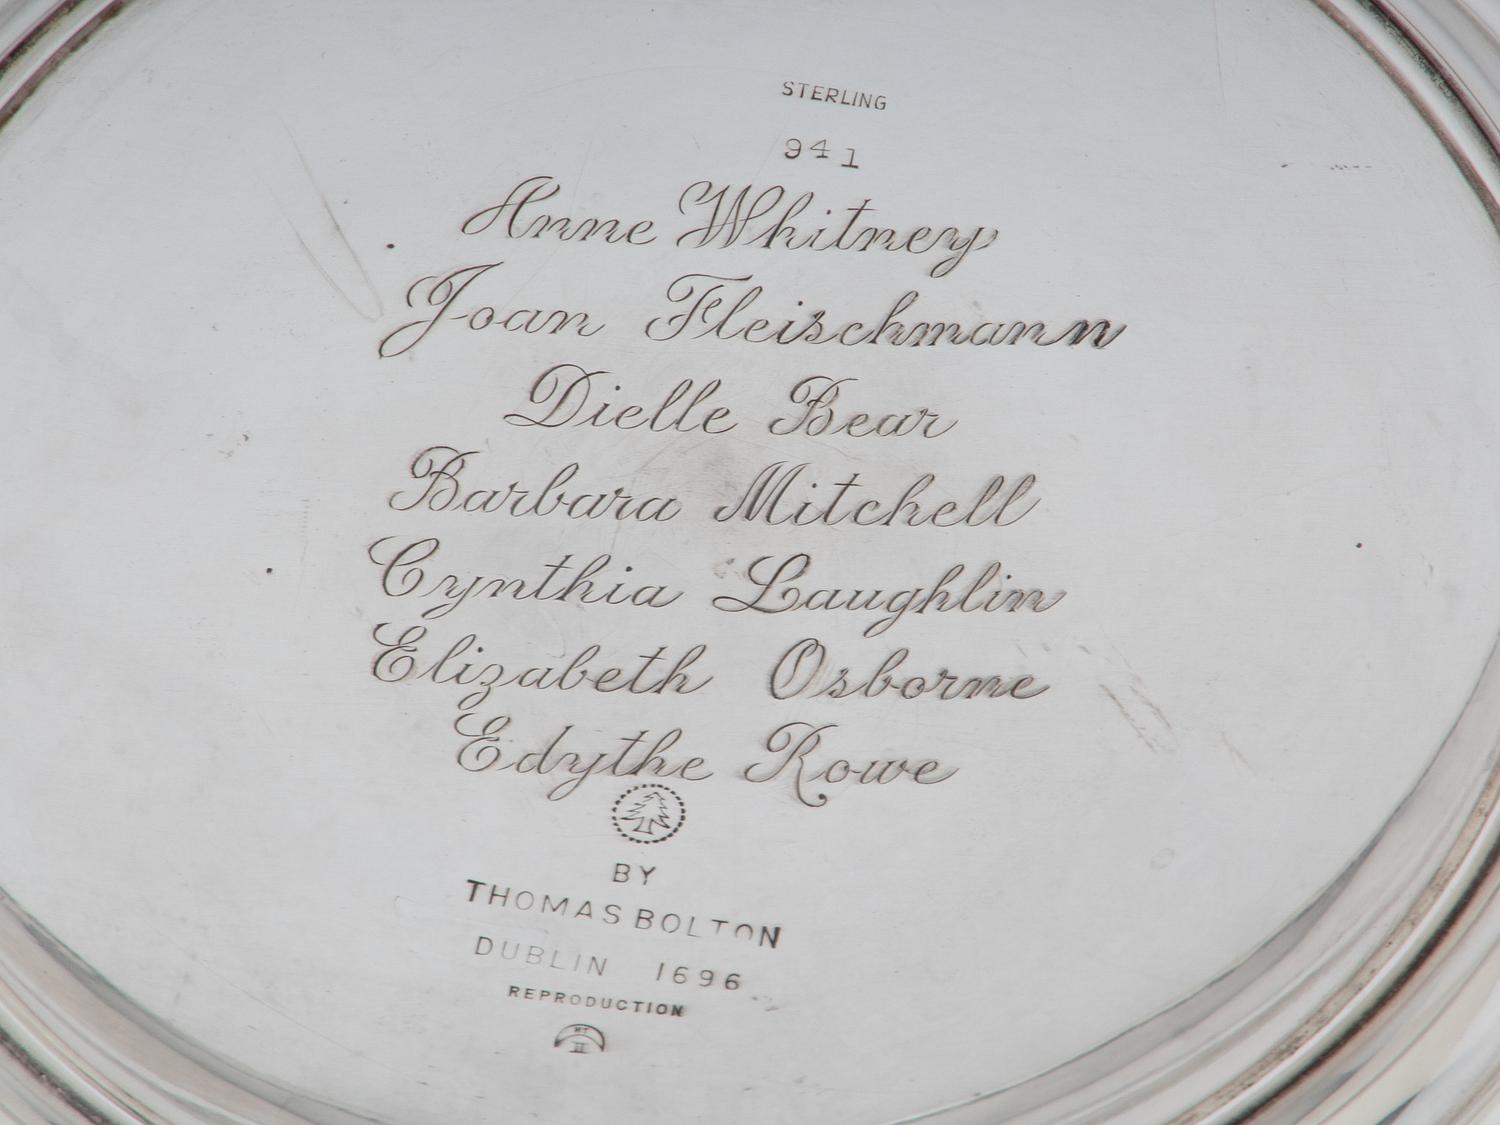 STERLING
941
Anne Whitney
Joan Fleischmann
Dielle Bear
Barbara Mitchell
Cynthia Laughlin
Elizabeth Osborne
Edythe Rowe
BY
THOMAS BOLTON
DUBLIN 1696
REPRODUCTION